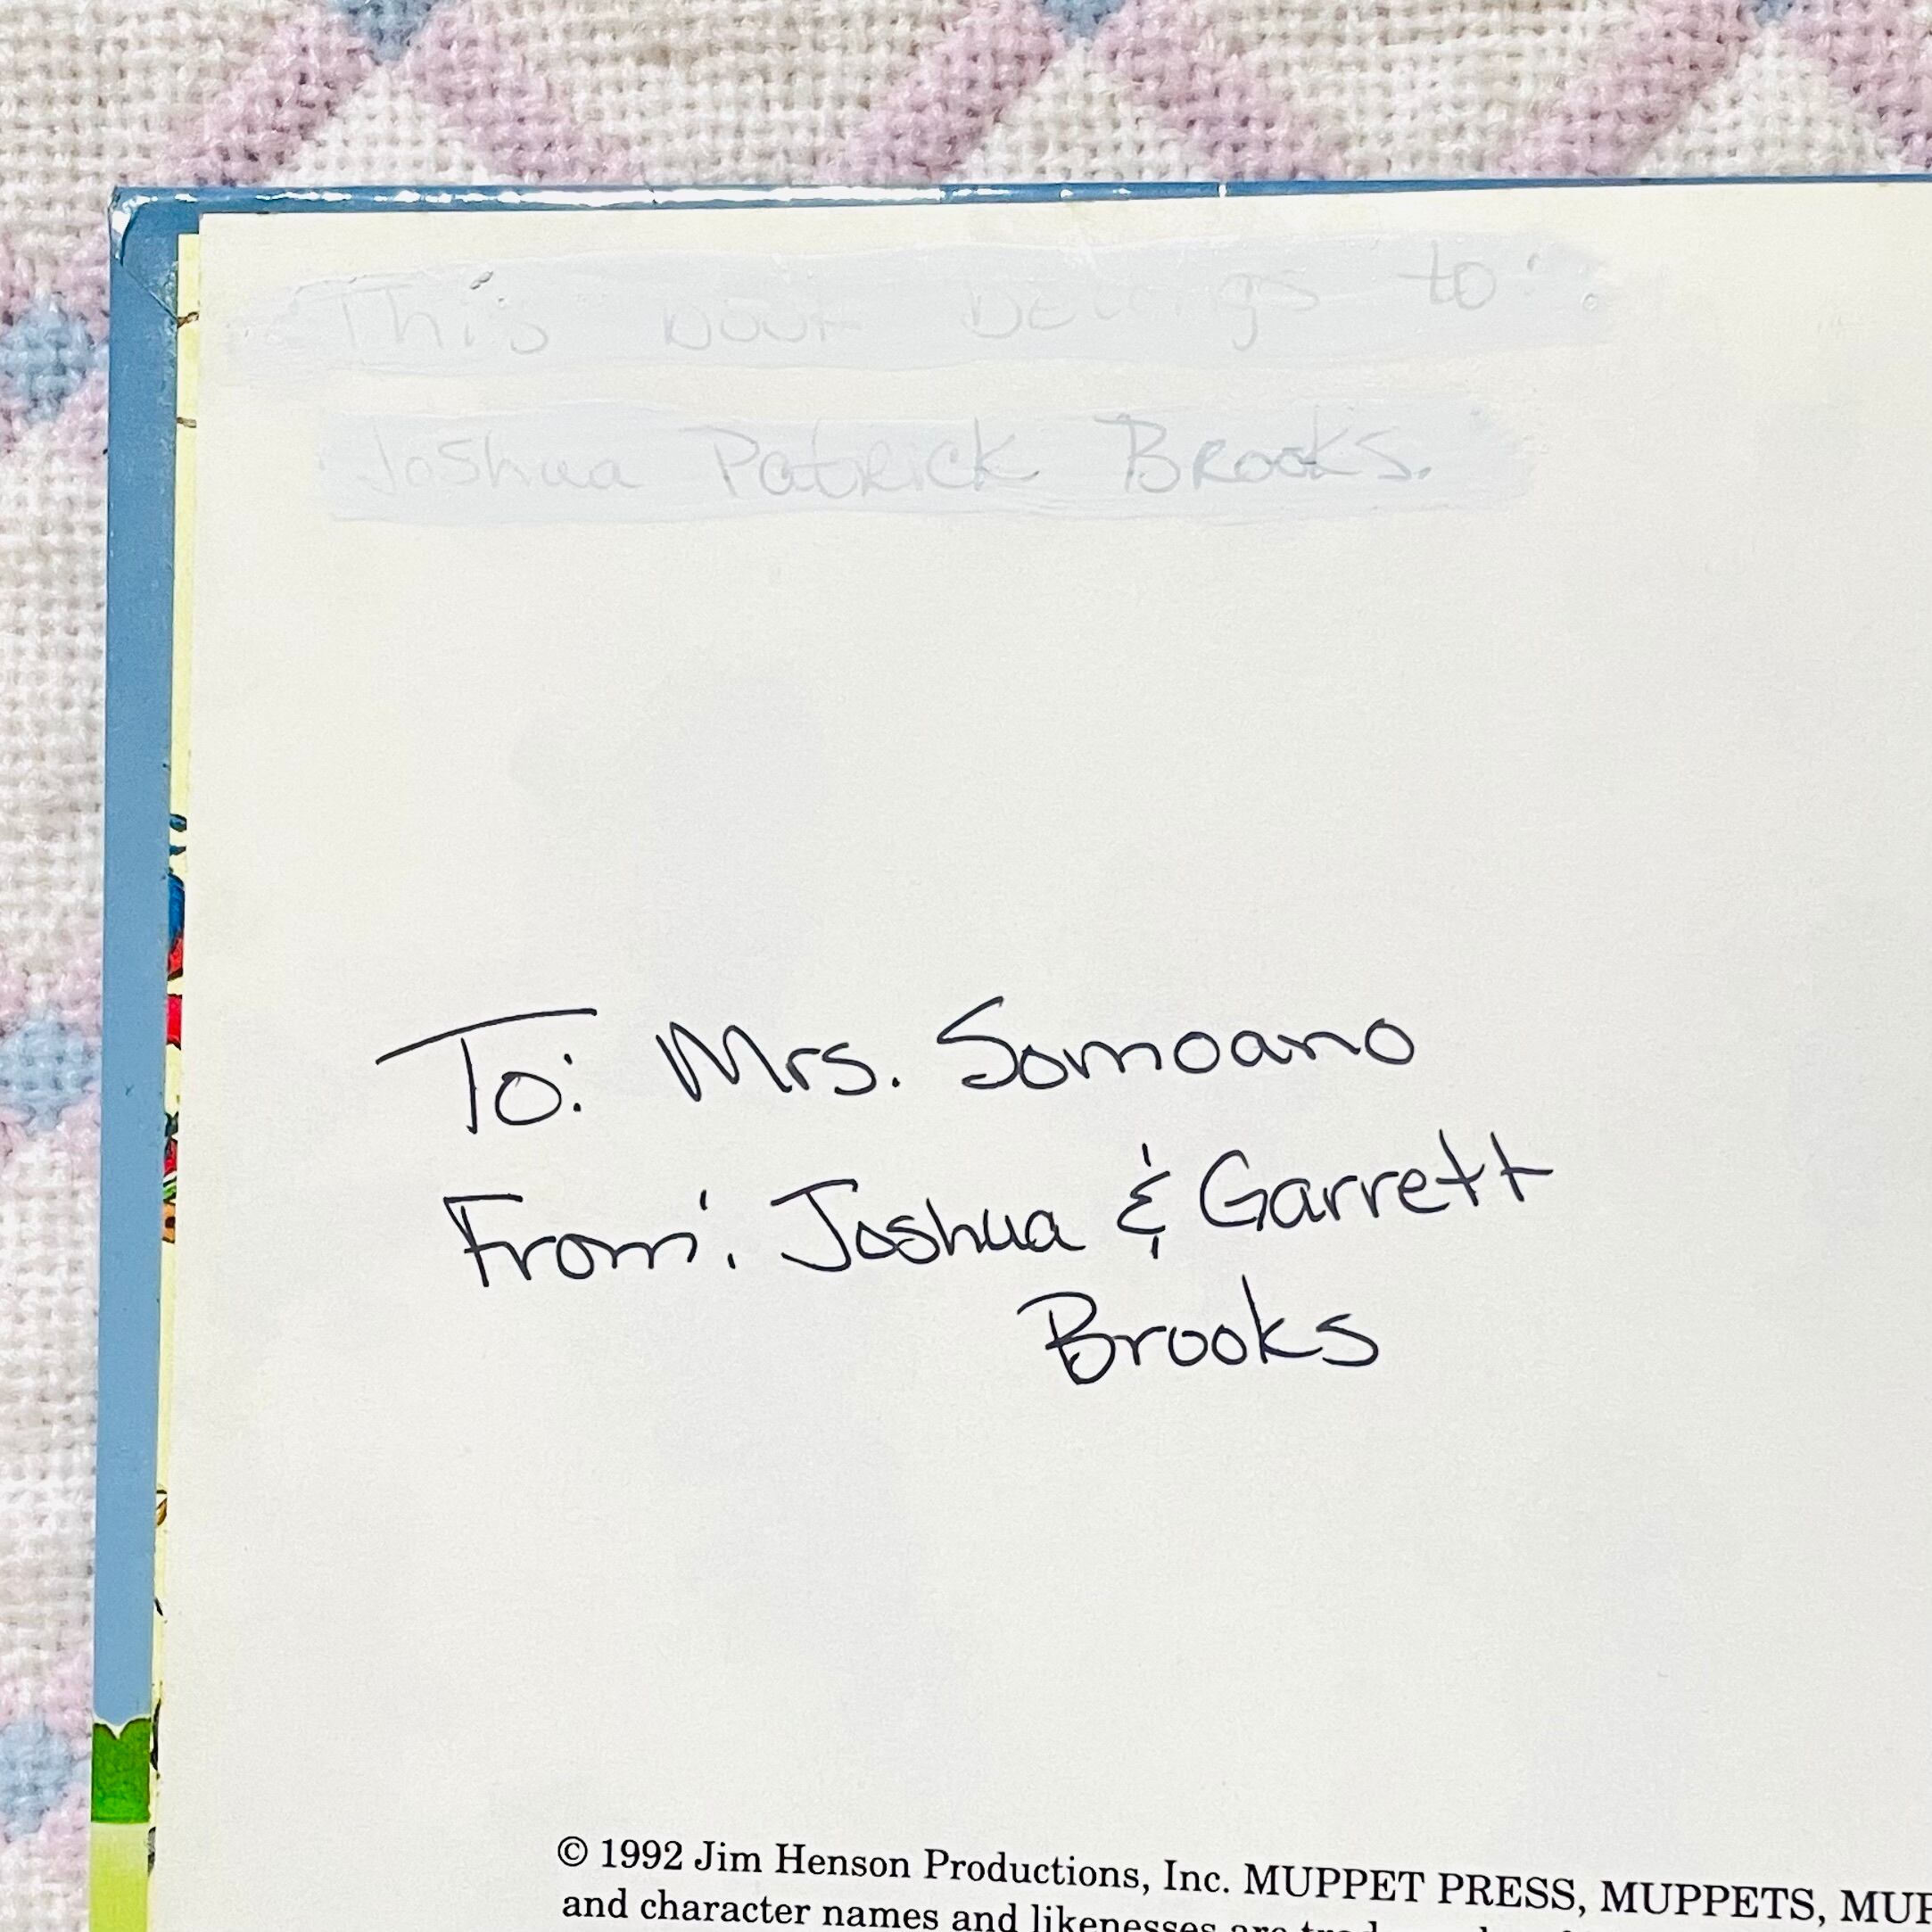 This book belongs to:
Joshua Patrick Brooks.
To: Mrs. Somoano
From: Joshua & Garrett
Brooks
© 1992 Jim Henson Productions, Inc. MUPPET PRESS, MUPPETS, MUP
and character names and likenesses are